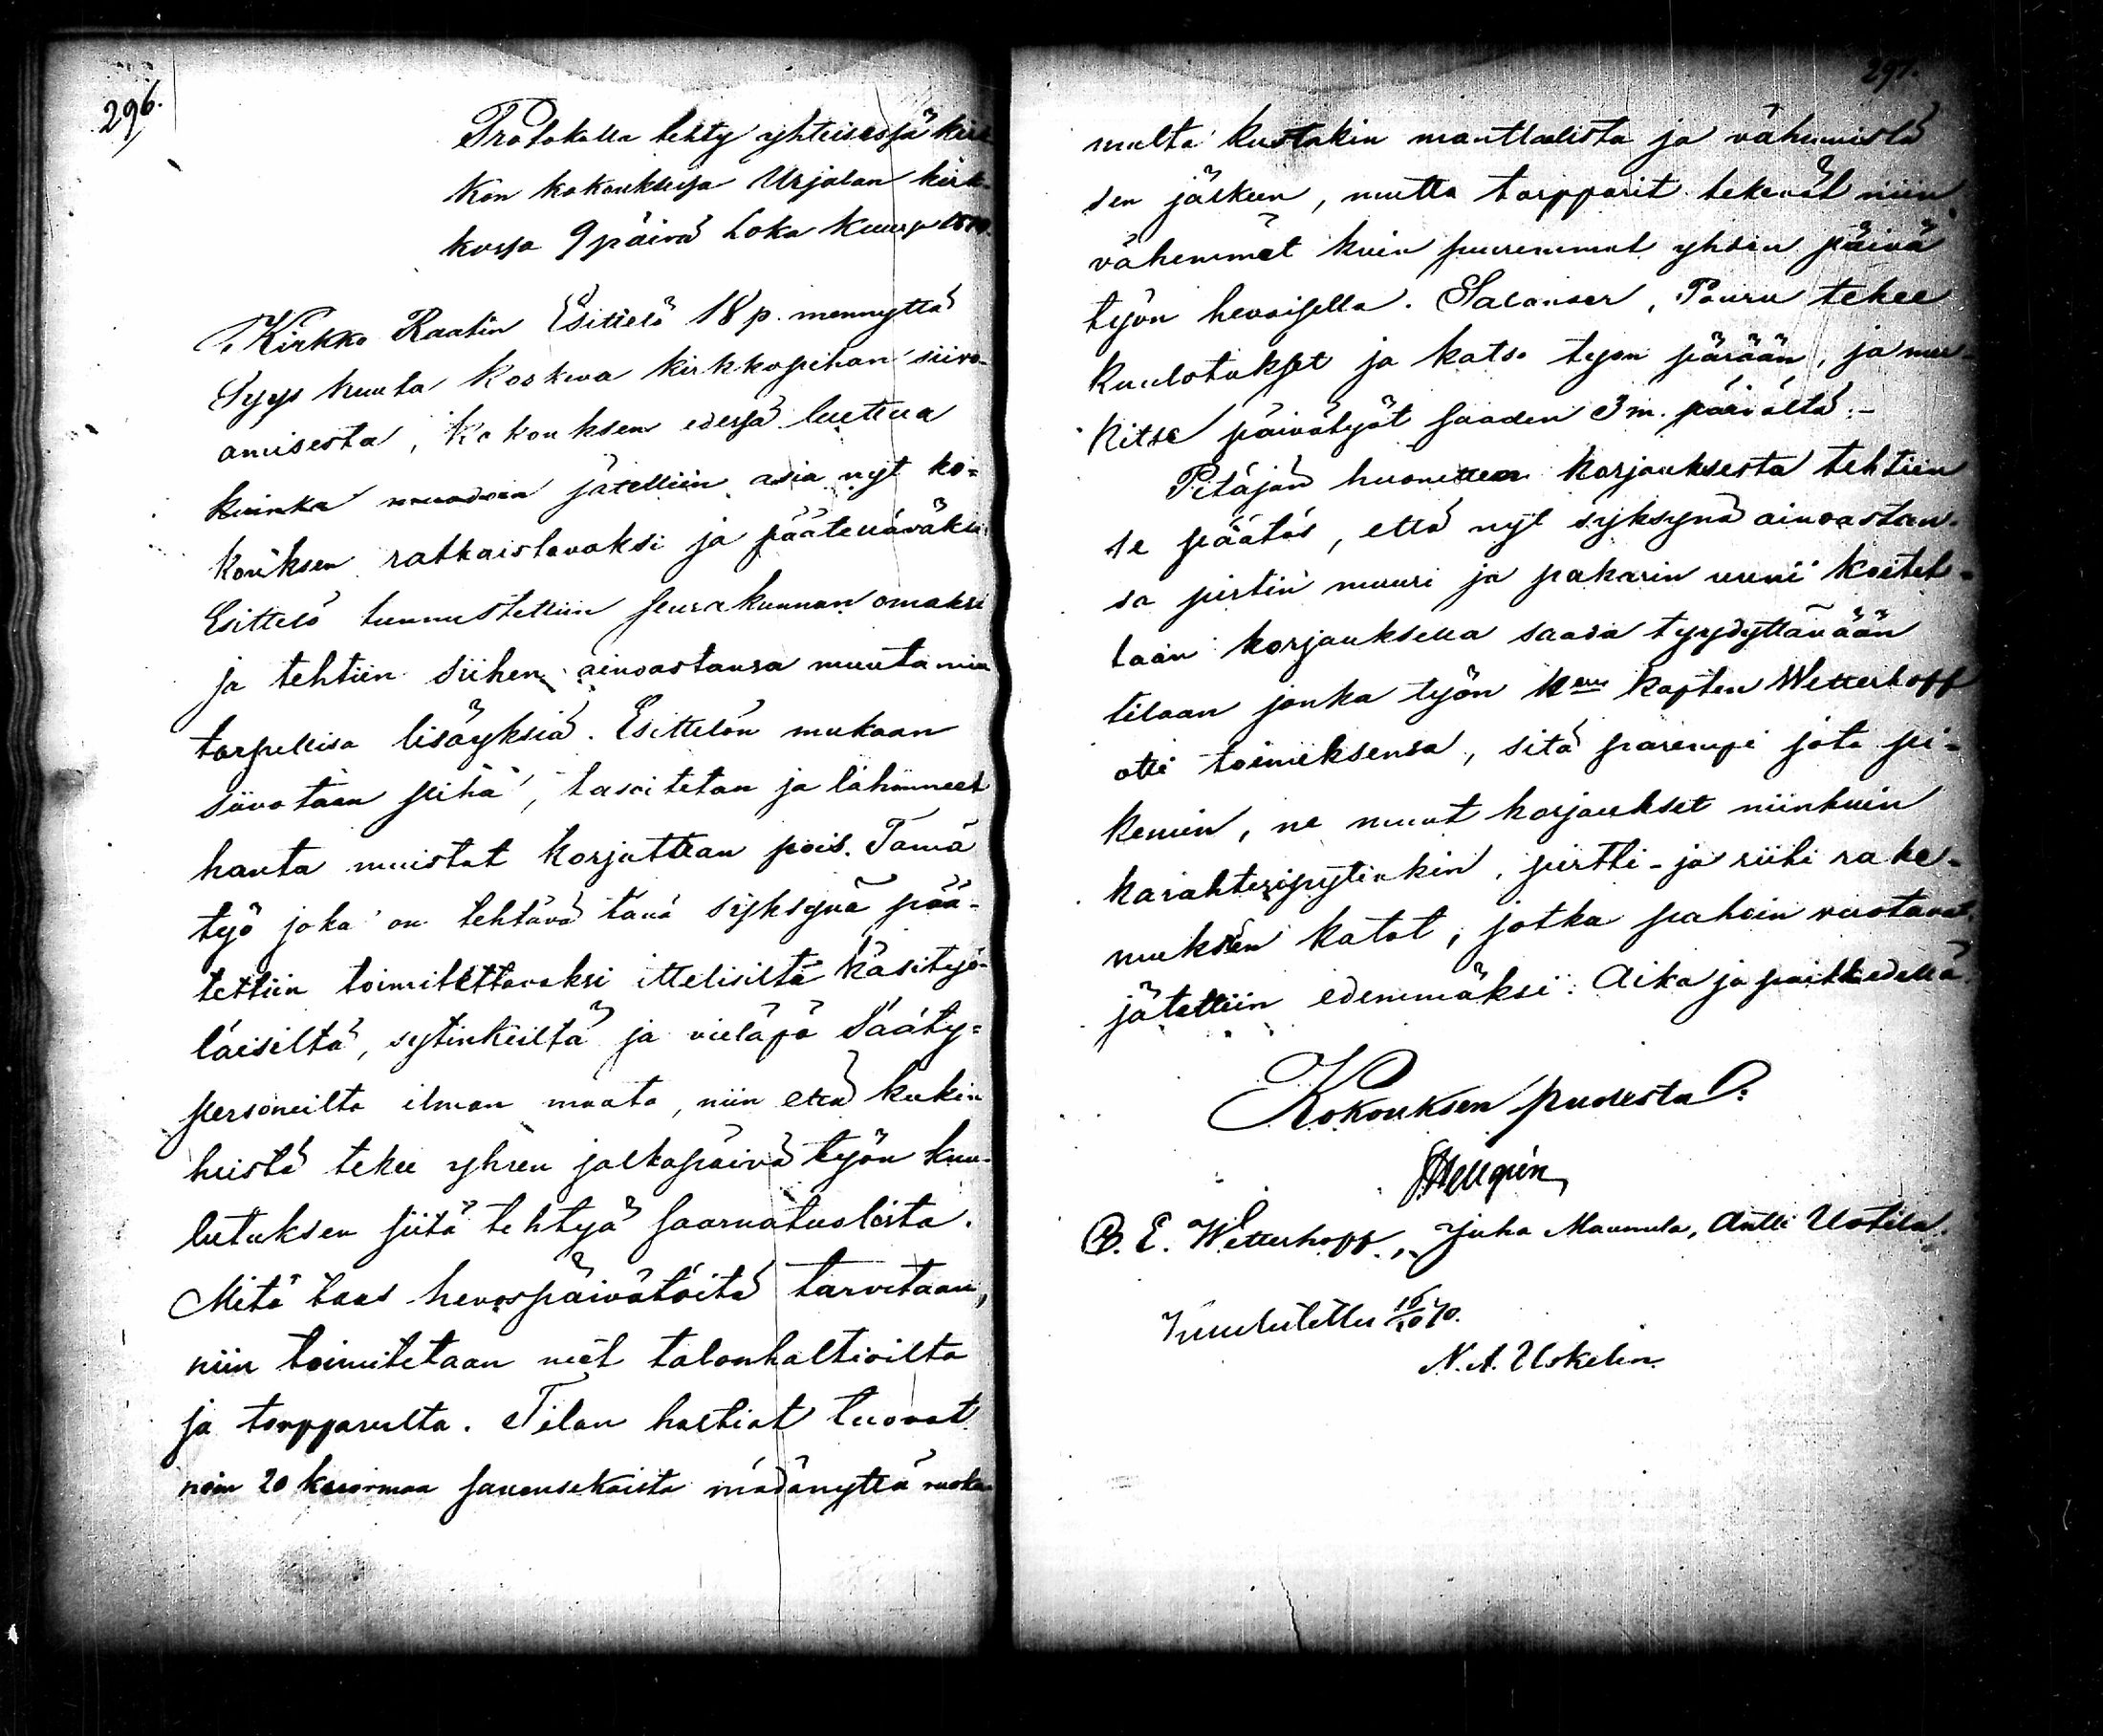 296.
Protokolla tehty yhteisessä kirk-
kon kokouksessa Urjalan kirk-
kossa 9 päivä Loka kuussa 1870.
Kirkko Raatin Esittelö 18 p. mennyttä
Syys kuuta koskeva kirkkopihan siivo-
amisesta, kokouksen edessä luettua
kuinka jätettiin asia nyt ko-
kouksen ratkaistavaksi ja päätettäväksi.
Esittelö tunnustettiin seurakunnan omaksi
ja tehtiin siihen ainoastansa muutamia
tarpellisia lisäyksiä. Esittelön mukaan
siivotaan piha, tasoitetan ja lähinneet
hauta muistat korjattaan pois. Tämä
työ joka on tehtävä tänä syksynä pää-
tettiin toimitettavaksi ittelisiltä käsityö-
läisiltä, sytinkiiltä ja vieläpä Sääty-
personeilta ilman maata, niin että kukin
heistä tekee yhren jalkapäivä työn kuu-
lutuksen siitä tehtyä saarnatuolista.
Mitä taas hevospäivätöitä tarvitaan,
niin toimitetaan net talonhaltioilta
ja torpparilta. Tilan haltiat tuovat
noin 20 kuormaa savensekaista mädänyttä ruoka-
297.
multa kustakin manttaalista ja vähemistä
sen jälkeen, mutta torpparit tekevät niin
vähemmät kuin suuremmat yhden päivä
työn hevoisella. Salonser, Pouru tekee
kuulotukset ja katso työn pärään, ja mer-
kitse päivätyöt saaden 3 m. päivältä.-
Pitäjän huonetten korjauksesta tehtiin
se päätös, että nyt syksynä ainoastan-
sa pirtin muuri ja pakarin uuni koetel-
laan korjauksella saada tyydyttävään
tilaan jonka työn Herra Kapten Wetterhoff
otti toimeksensa, sitä parempi jota pi-
kemin, ne muut korjaukset niinkuin
karahteripytinkin, pirtti- ja riihi rake-
muksien katot, jotka pahoin vuotavat
jätettiin edemmäksi. Aika ja paikk edellä.
Kokouksen puolesta:
F. Hellgrén
B. E. Wetterhoff, Juha Maunula, Antti Uotila.
Kuulutettu 16/10 70.
N. A. Uskelin.